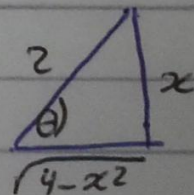 2
x
θ
√4-x²